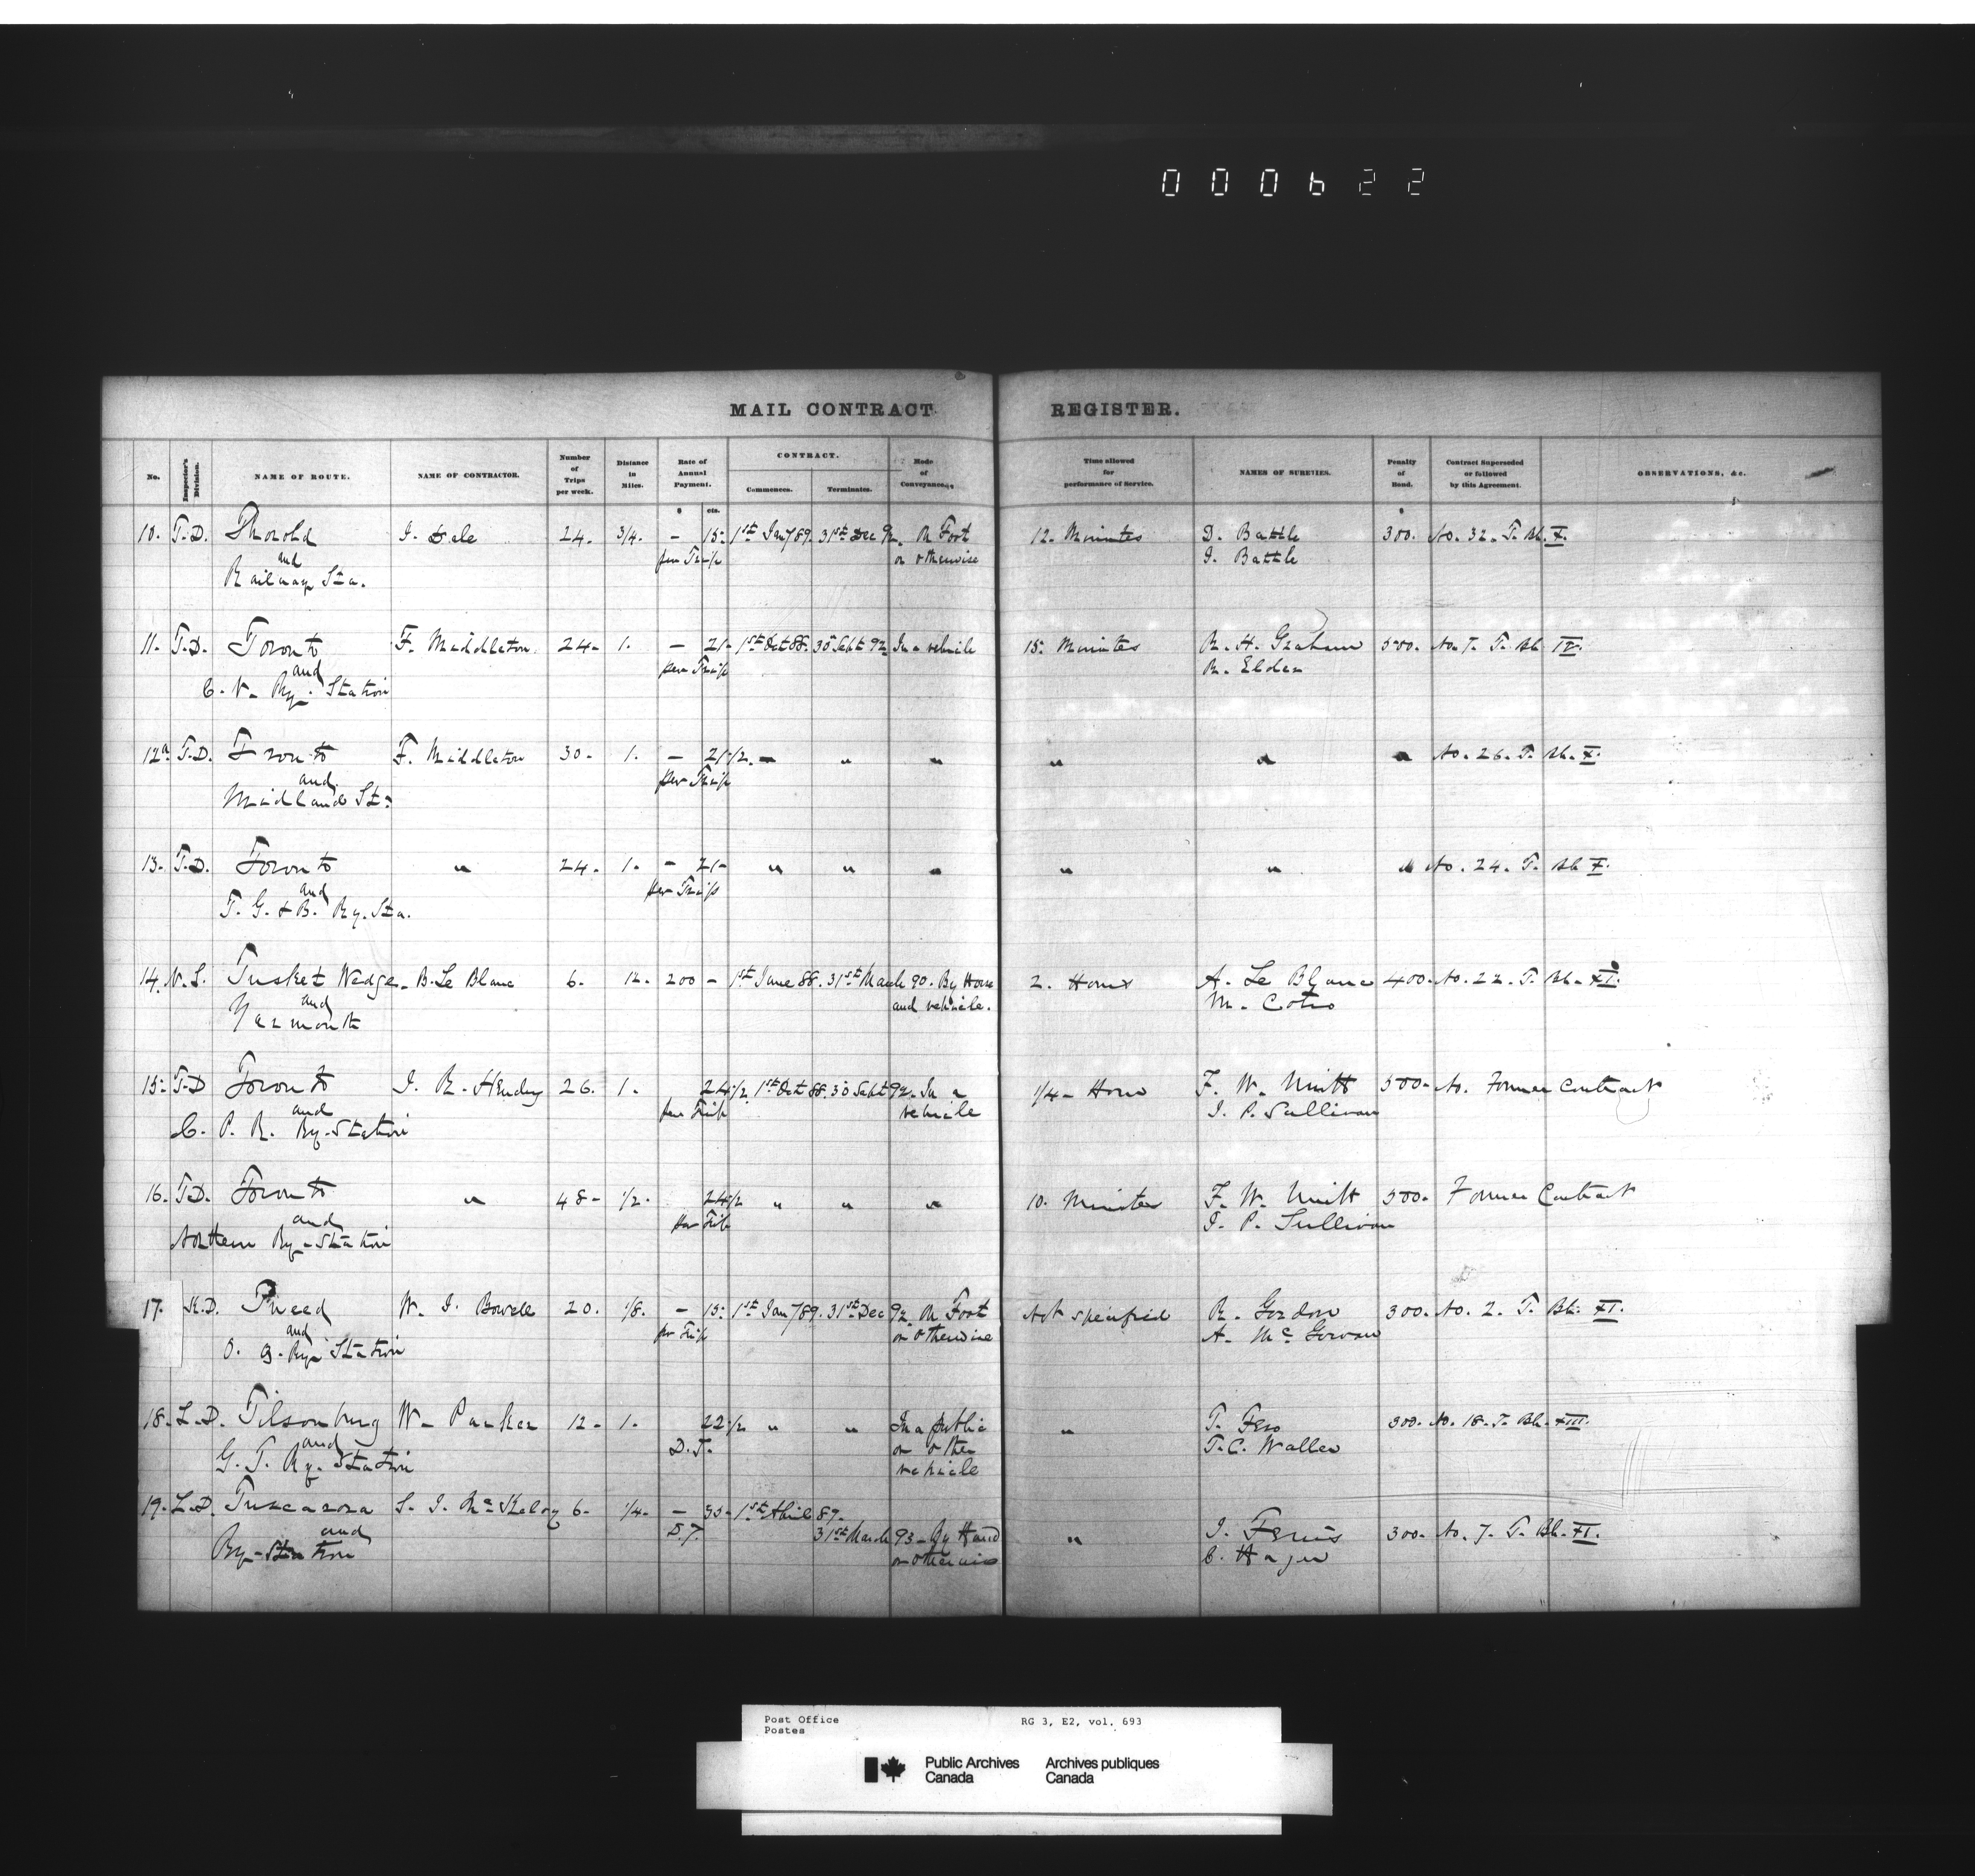 000622
MAIL CONTRACT REGISTER.
No. Inspector's Division. NAME OF ROUTE. NAME OF CONTRACTOR. Number of Trips per week. Distance in Miles. Rate of Annual Payment. CONTRACT. Commences. Terminates. Mode of Conveyance. Time allowed for performance of Service. NAMES OF SURETIES. Penalty of Bond. Contract Superseded or followed by this Agreement. OBSERVATIONS, &c.
$ cts. $
10. T.D. Thorold J. Dale 24. 3/4. — 15. 1st Jany 89. 31st Dec 92. On Foot 12. Minutes D. Battle 300. No. 32. T. Bk. X.
and per Trip or otherwise J. Battle
Railway Sta.
11. T.D. Toronto F. Middleton. 24. 1. — 21. 1st Oct 88. 30 Sept 92. In a vehicle 15. Minutes R. H. Graham 500. No. 7. T. Bk IX.
and per Trip R. Elder
C. V. Ry. Station
12a T.D. Toronto F. Middleton 30. 1. — 21 1/2. " " " " " " No. 26. T. Bk. X.
and per Trip
Midland St.
13. T.D. Toronto " 24. 1. — 21 " " " " " " No. 24. T. Bk X.
and per Trip
T. G. & B. Ry. Sta.
14. N.S. Tusket Wedge B. Le Blanc 6. 12. 200 — 1st June 88. 31st March 90. By Horse 2. Hours A. Le Blanc 400. No. 22. T. Bk. XI.
and and vehicle. M.
Yarmouth
15. T.D Toronto J. R. Hendry 26. 1. 24 1/2 1st Oct 88. 30 Sept 92. In a 1/4 Hour F. W. Unitt 500. No. Former Contract
and per Trip vehicle J. P. Sullivan
C. P. R. Ry. Station
16. T.D. Toronto " 48. 1/2. 24 1/2 " " " 10. Minutes F. W. Unitt 500. Former Contract
and per Trip J. P. Sullivan
Northern Ry. Station
17. K.D. Tweed W. J. Bowell 20. 1/8. — 15. 1st Jany 89. 31st Dec 92. On Foot Not specified R. Gordon 300. No. 2. T. Bk. XI.
and per Trip or otherwise A. McGowan
O. & Q. Ry. Station
18. L.D. Tilsonburg W. Parker 12. 1. 22 1/2 " " In a public " T. 300. No. 18. T. Bk. XIII
and D.T. or other T. C. Waller
G. T. Ry. Station vehicle
19. L.D. Tuscarora S. J. McKelvy 6. 1/4. — 35. 1st April 89.
and D.T. 31st March 93. By Hand " J. Ferris 300. No. 7. T. Bk. XI.
Ry. Station or otherwise C. Hager
Post Office RG 3, E2, vol. 693
Postes
Public Archives Archives publiques
Canada Canada